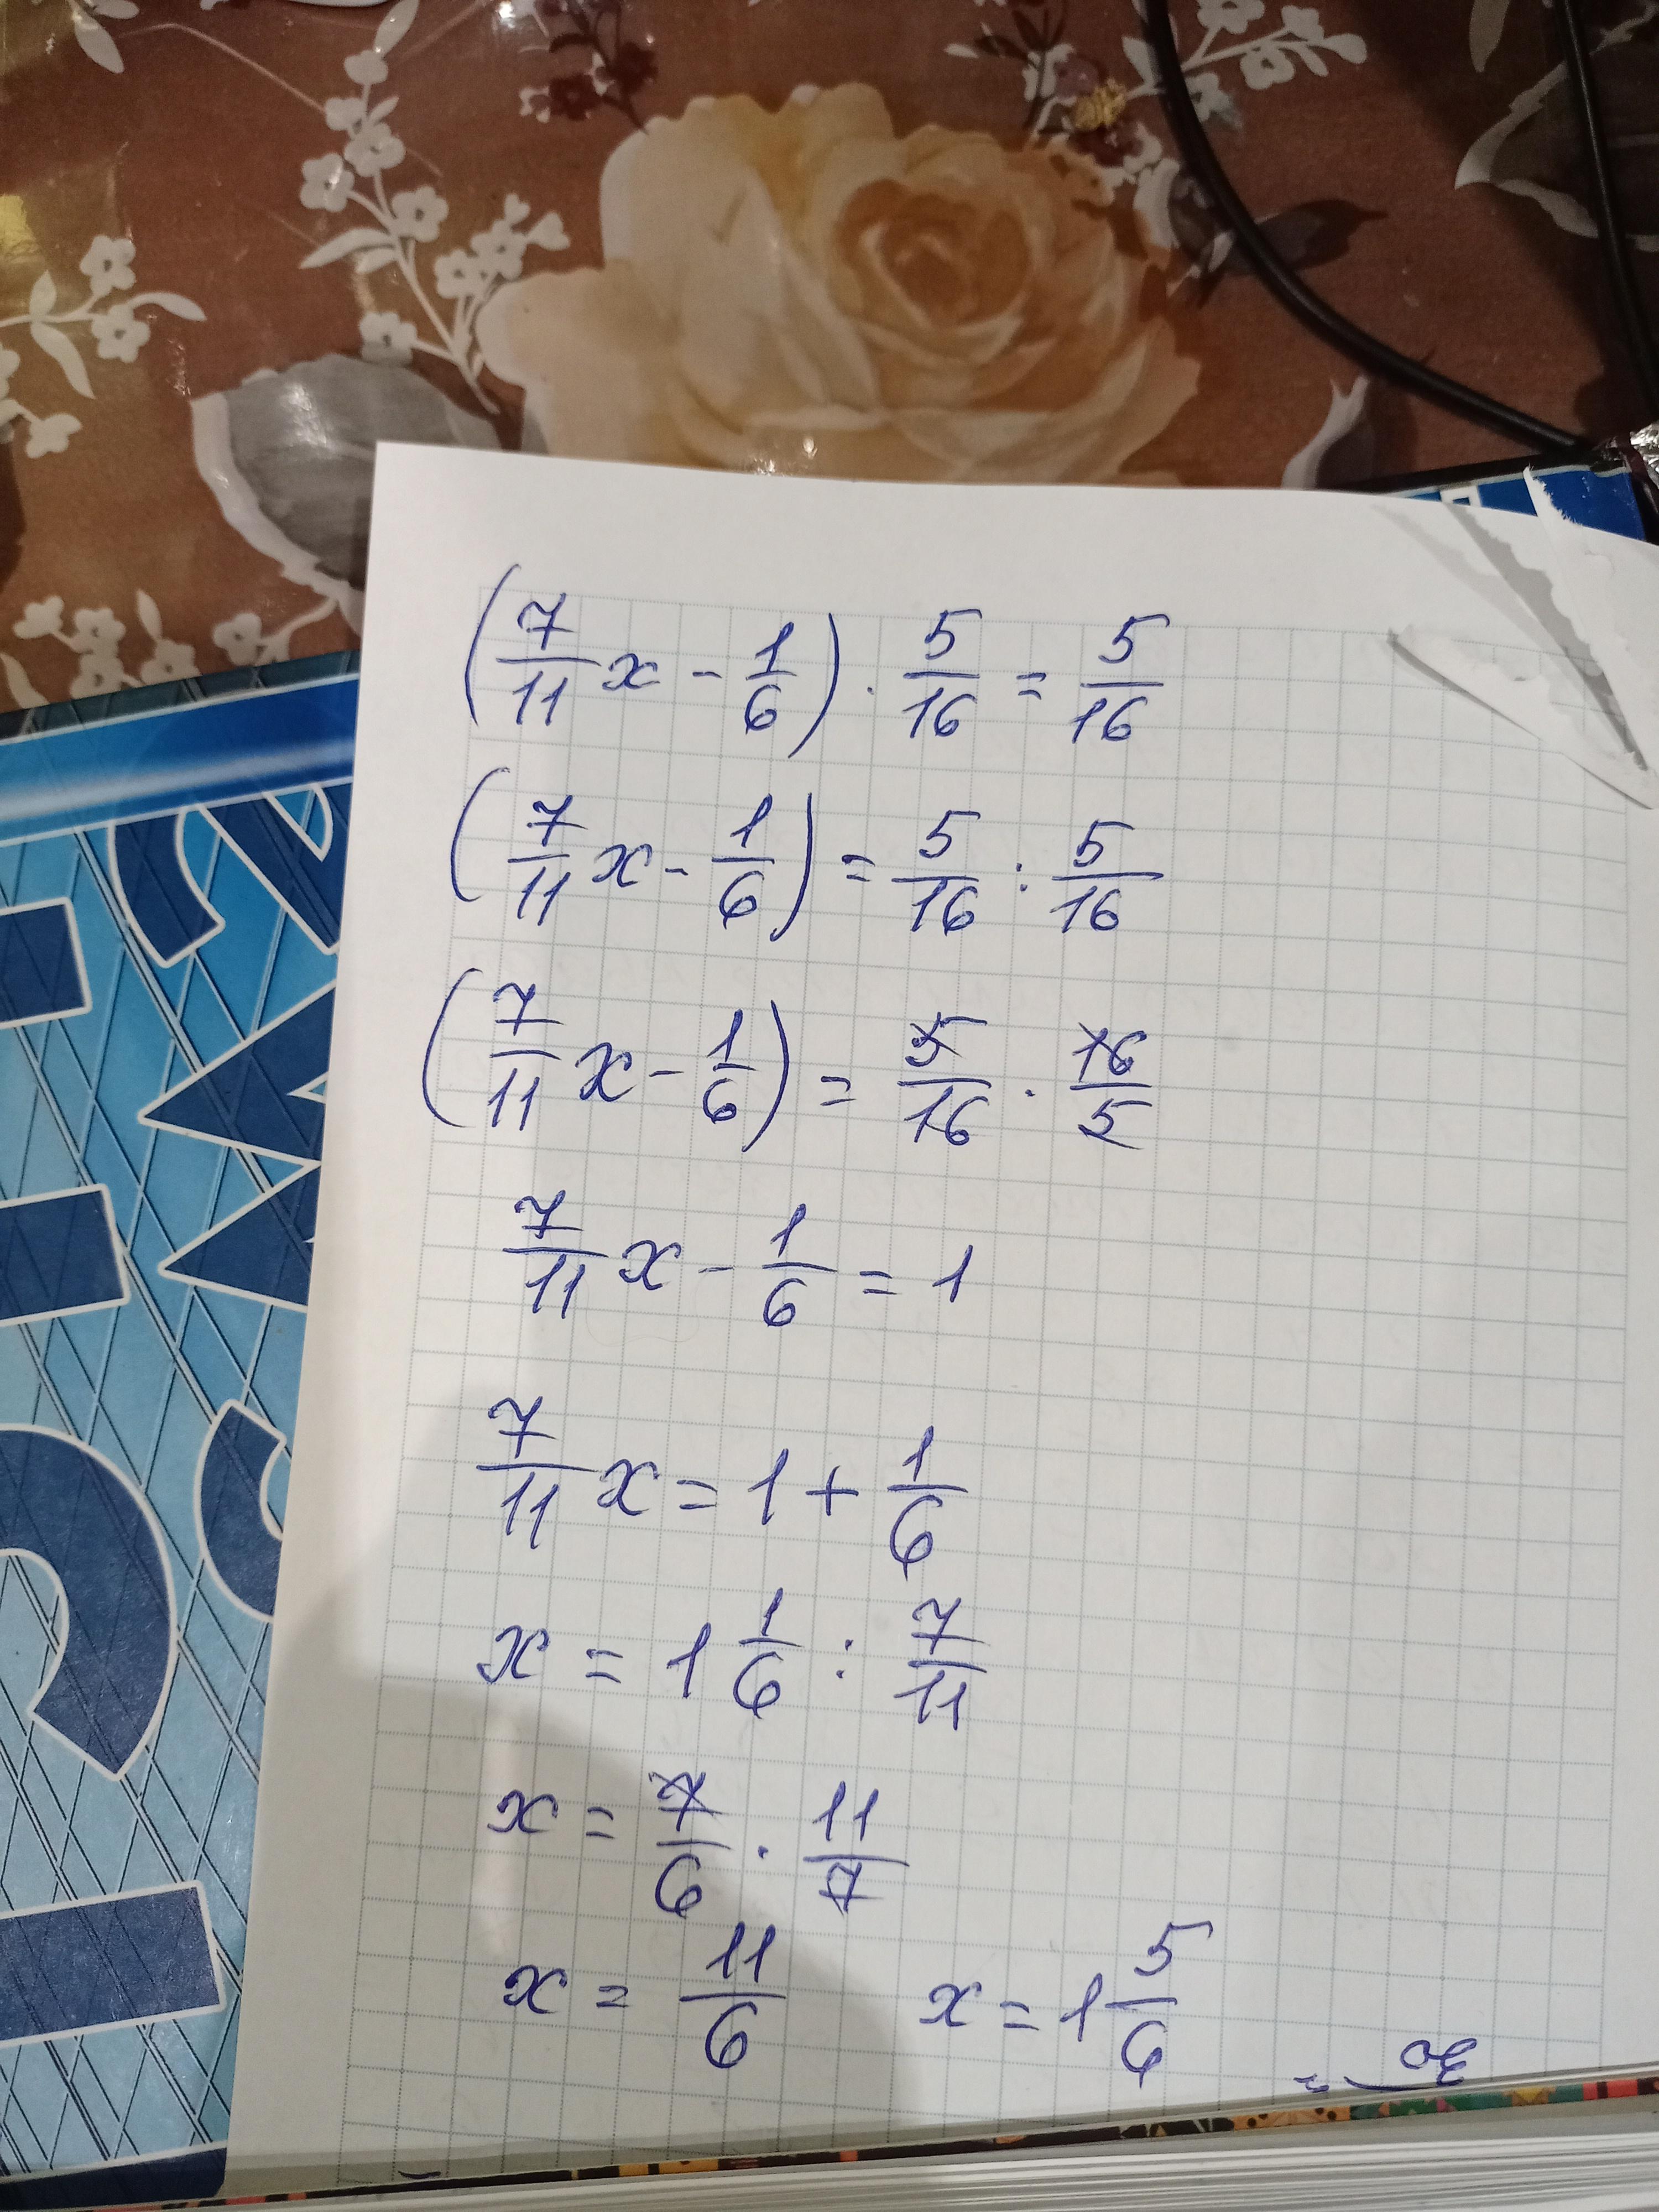 (7/11 x - 1/6) · 5/16 = 5/16
(7/11 x - 1/6) = 5/16 : 5/16
(7/11 x - 1/6) = 5/16 · 16/5
7/11 x - 1/6 = 1
7/11 x = 1 + 1/6
x = 1 1/6 : 7/11
x = 7/6 · 11/7
x = 11/6   x = 1 5/6